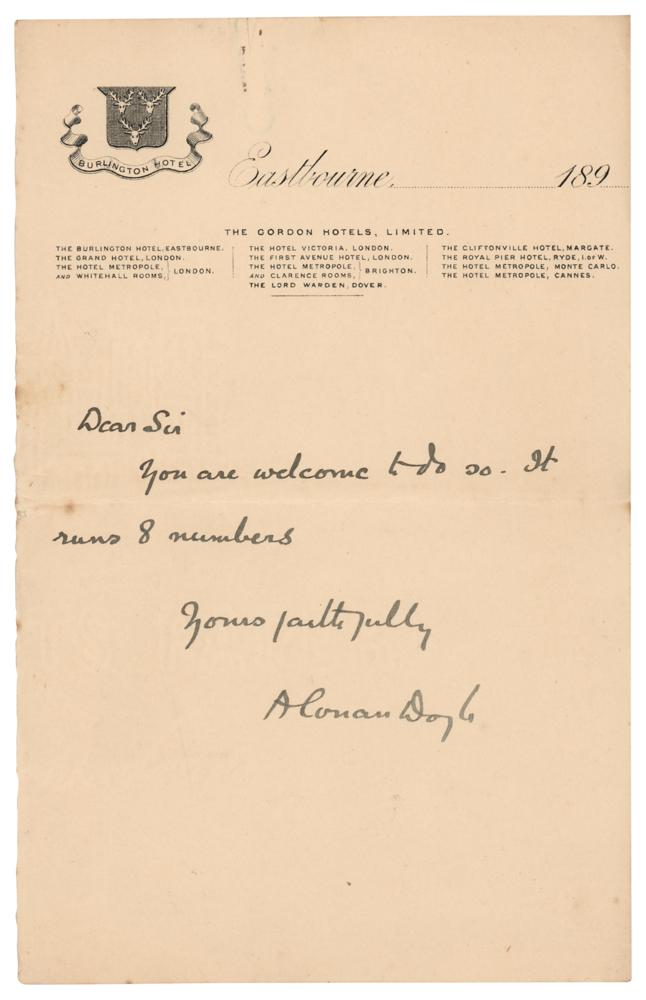 BURLINGTON HOTEL
Eastbourne, 189
THE GORDON HOTELS, LIMITED.
THE BURLINGTON HOTEL, EASTBOURNE.
THE GRAND HOTEL, LONDON.
THE HOTEL METROPOLE,
AND WHITEHALL ROOMS, } LONDON.
THE HOTEL VICTORIA, LONDON.
THE FIRST AVENUE HOTEL, LONDON.
THE HOTEL METROPOLE,
AND CLARENCE ROOMS, } BRIGHTON.
THE LORD WARDEN, DOVER.
THE CLIFTONVILLE HOTEL, MARGATE.
THE ROYAL PIER HOTEL, RYDE, I. OF W.
THE HOTEL METROPOLE, MONTE CARLO.
THE HOTEL METROPOLE, CANNES.
Dear Sir
You are welcome to do so. It
runs 8 numbers
Yours faithfully
A Conan Doyle